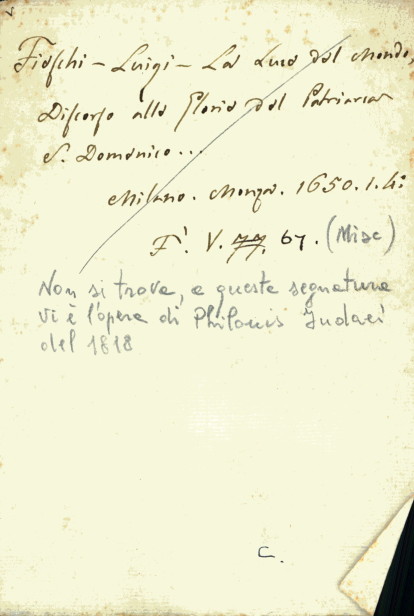 Fieschi - Luigi - La Luce del Mondo,
Discorso alle Glorie del Patriarca
S. Domenico...
Milano. Monza. 1650. 1. 4:
F. V. 77. 67. (Misc)
Non si trova, a queste segnature
vi è l'opera di Philonis Judaei
del 1818
C.